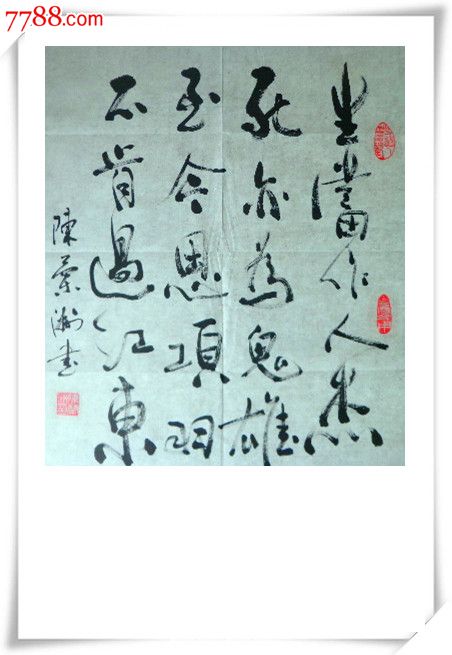 7788.com
生當作人杰
死亦為鬼雄
至今思項羽
不肯過江東
陳書